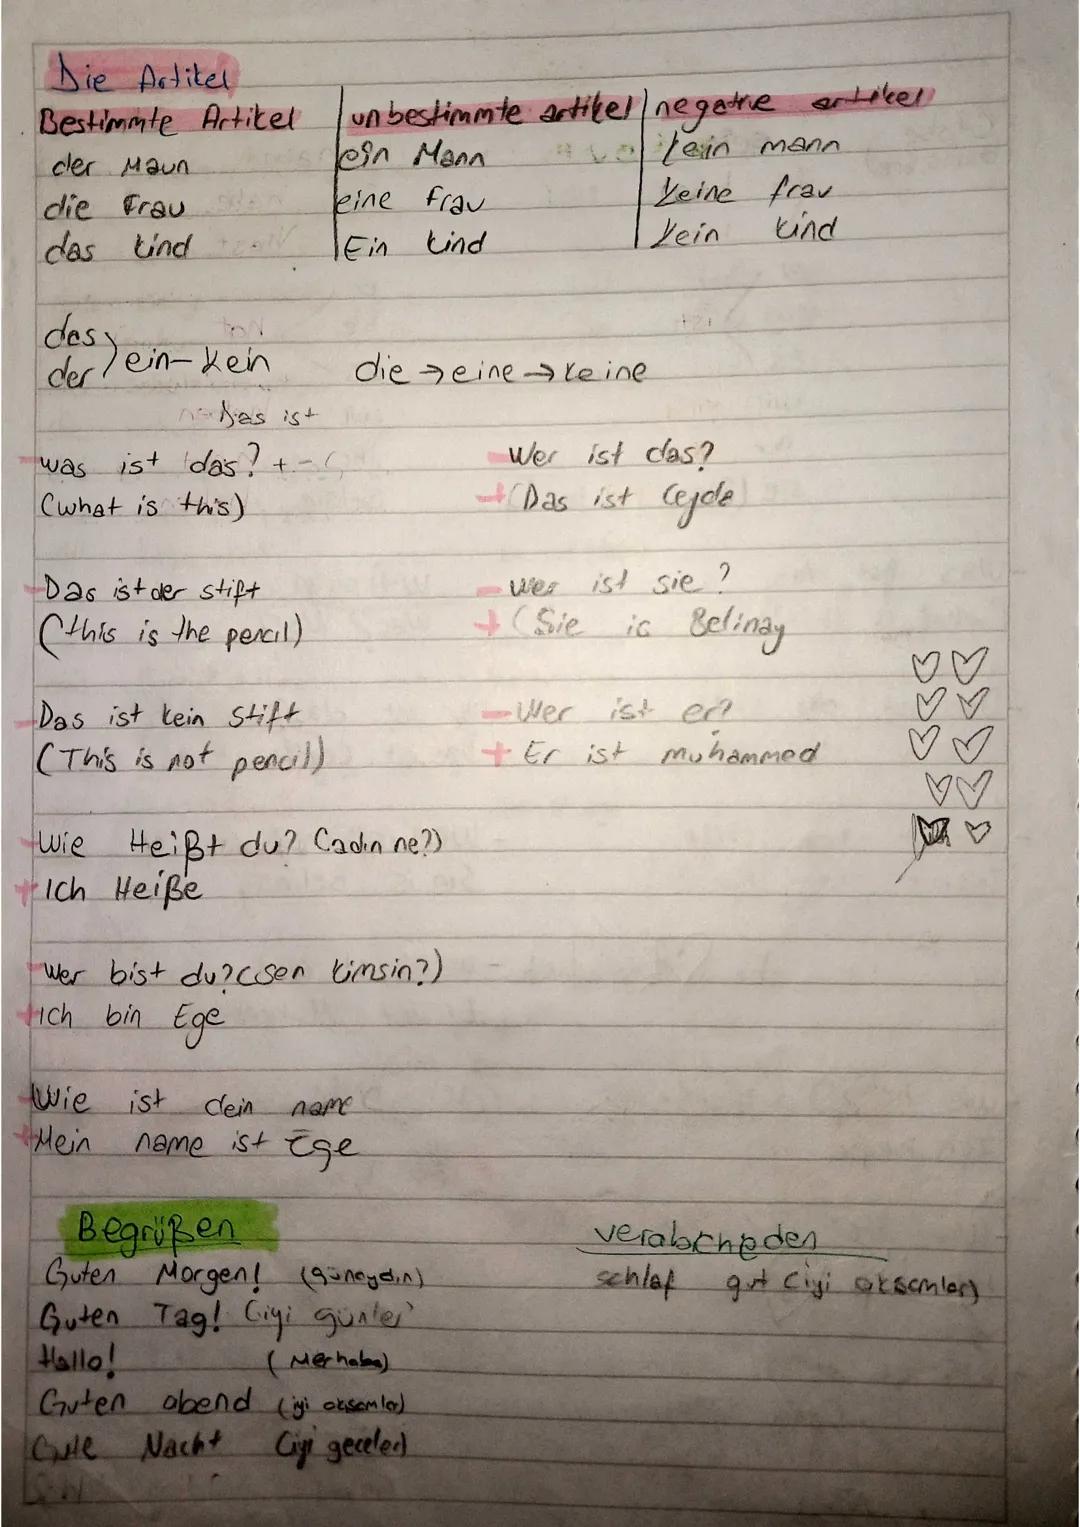 Die Artikel
Bestimmte Artikel unbestimmte artikel negative artikel
der Mann ein Mann kein mann
die Frau eine Frau keine frau
das kind Ein kind kein kind
das
der ein-kein die → eine → keine
Das ist
was ist das? + - Wer ist das?
(what is this) + (Das ist Ceyda
- Das ist der stift - wer ist sie?
(this is the pencil) + (Sie is Belinay
- Das ist kein Stift - Wer ist er?
(This is not pencil) + Er ist muhammed
- Wie Heißt du? (adın ne?)
+ Ich Heiße
- Wer bist du? (sen kimsin?)
+ Ich bin Ege
- Wie ist dein name
+ Mein name ist Ege
Begrüßen verabscheden
Guten Morgen! (günaydın) schlaf gut (iyi akşamlar)
Guten Tag! (iyi günler
Hallo! (Merhaba)
Guten abend (iyi akşamlar)
Gute Nacht (iyi geceler)